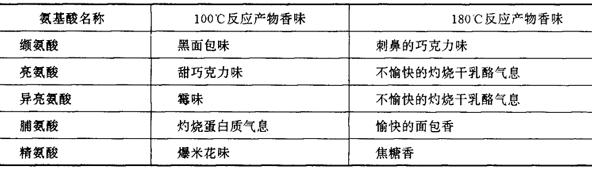 氨基酸名称 100℃反应产物香味 180℃反应产物香味
缬氨酸 黑面包味 刺鼻的巧克力味
亮氨酸 甜巧克力味 不愉快的灼烧干乳酪气息
异亮氨酸 霉味 不愉快的灼烧干乳酪气息
脯氨酸 灼烧蛋白质气息 愉快的面包香
精氨酸 爆米花味 焦糖香